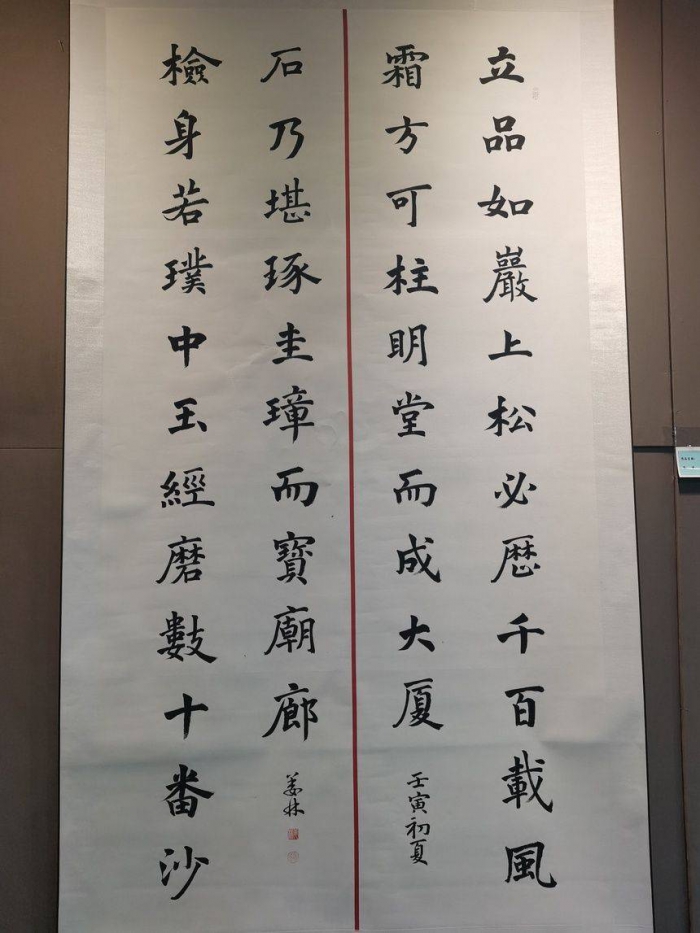 立品如巖上松必歷千百載風
霜方可柱明堂而成大厦
壬寅初夏
檢身若璞中玉經磨數十番沙
石乃堪琢圭璋而寶廟廊
姜林